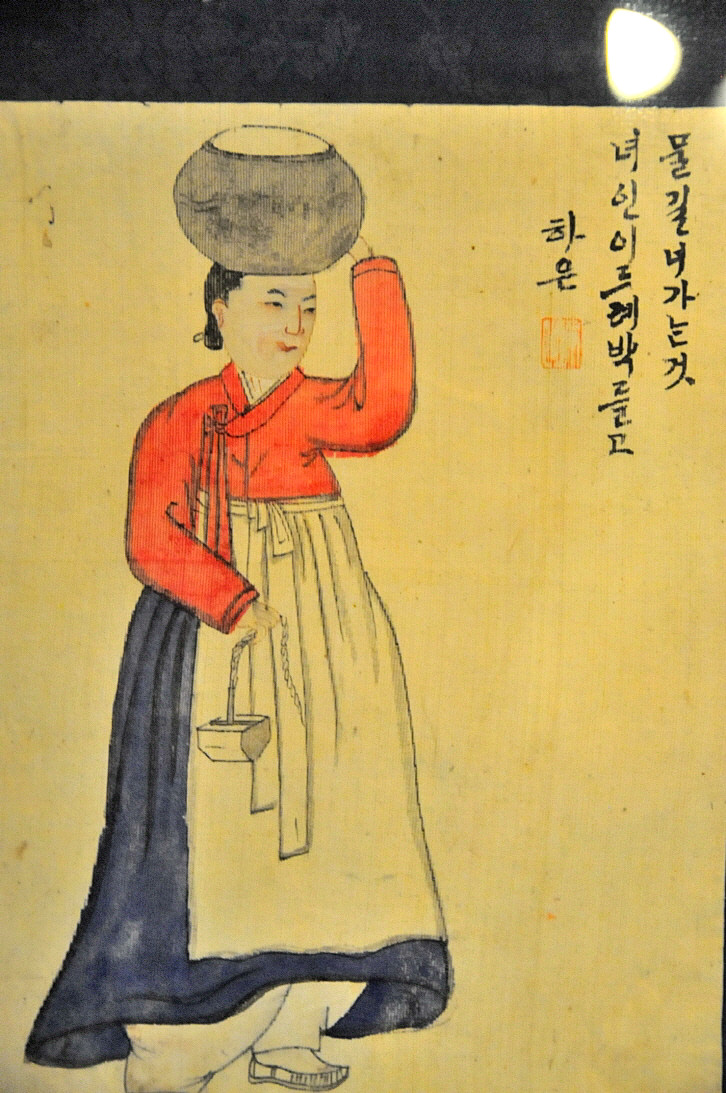 물길너가는것
녀인이드레박들고
하은